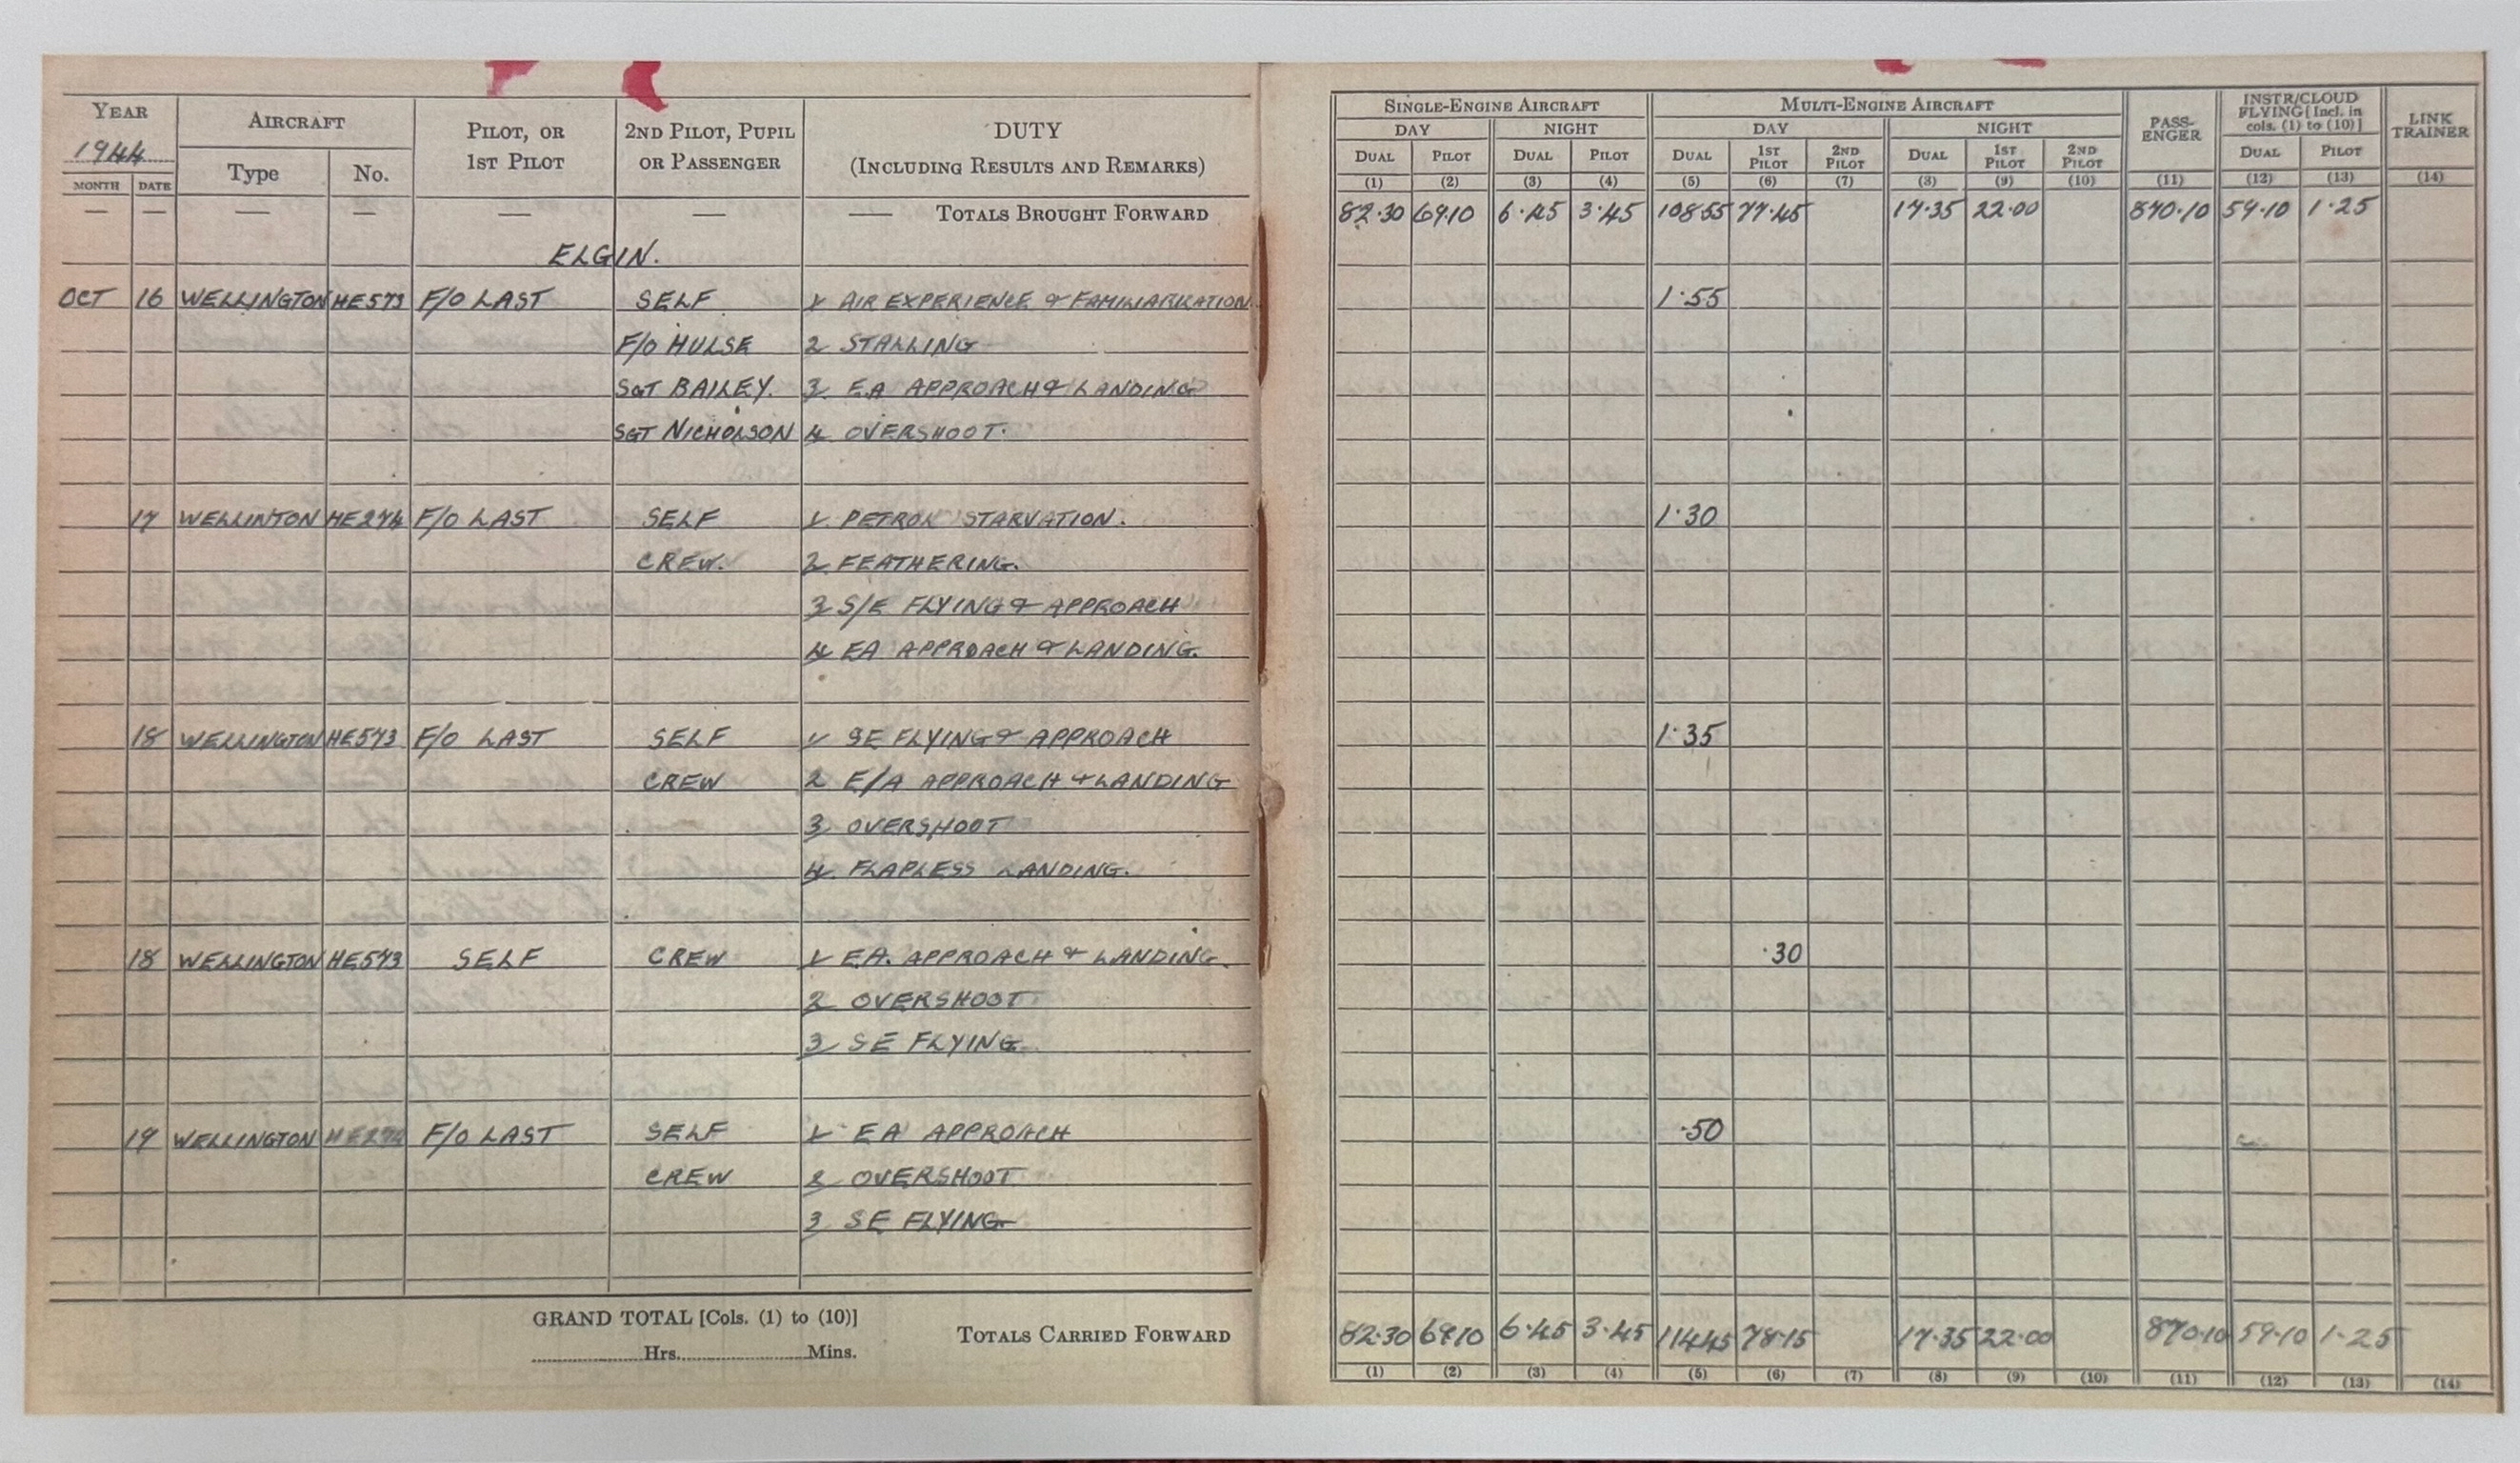 YEAR AIRCRAFT PILOT, OR 1ST PILOT 2ND PILOT, PUPIL OR PASSENGER DUTY (INCLUDING RESULTS AND REMARKS) SINGLE-ENGINE AIRCRAFT MULTI-ENGINE AIRCRAFT PASS-ENGER INSTR/CLOUD FLYING [Incl. in cols. (1) to (10)] LINK TRAINER
1944 DAY NIGHT DAY NIGHT
MONTH DATE Type No. DUAL PILOT DUAL PILOT DUAL 1ST PILOT 2ND PILOT DUAL 1ST PILOT 2ND PILOT DUAL PILOT
(1) (2) (3) (4) (5) (6) (7) (8) (9) (10) (11) (12) (13) (14)
— — — — — — — TOTALS BROUGHT FORWARD 82·30 69·10 6·45 3·45 108·55 77·45 17·35 22·00 870·10 59·10 1·25
ELGIN.
OCT 16 WELLINGTON HE573 F/O LAST SELF 1 AIR EXPERIENCE & FAMILIARIZATION. 1·55
F/O HULSE 2 STALLING
SGT BAILEY. 3 E.A APPROACH & LANDING
SGT NICHOLSON 4 OVERSHOOT.
17 WELLINTON HE274 F/O LAST SELF 1. PETROL STARVATION. 1·30
CREW. 2 FEATHERING.
3 S/E FLYING & APPROACH
4 EA APPROACH & LANDING.
18 WELLINGTON HE573 F/O LAST SELF 1 SE FLYING & APPROACH 1·35
CREW 2 E/A APPROACH & LANDING
3 OVERSHOOT
4 FLAPLESS LANDING.
18 WELLINGTON HE573 SELF CREW 1 EA. APPROACH & LANDING. ·30
2 OVERSHOOT
3 SE FLYING
19 WELLINGTON HE274 F/O LAST SELF 1 EA APPROACH ·50
CREW 2 OVERSHOOT
3 SE FLYING
GRAND TOTAL [Cols. (1) to (10)]
Hrs. Mins.
TOTALS CARRIED FORWARD 82·30 69·10 6·45 3·45 114·45 78·15 17·35 22·00 870·10 59·10 1·25
(1) (2) (3) (4) (5) (6) (7) (8) (9) (10) (11) (12) (13) (14)